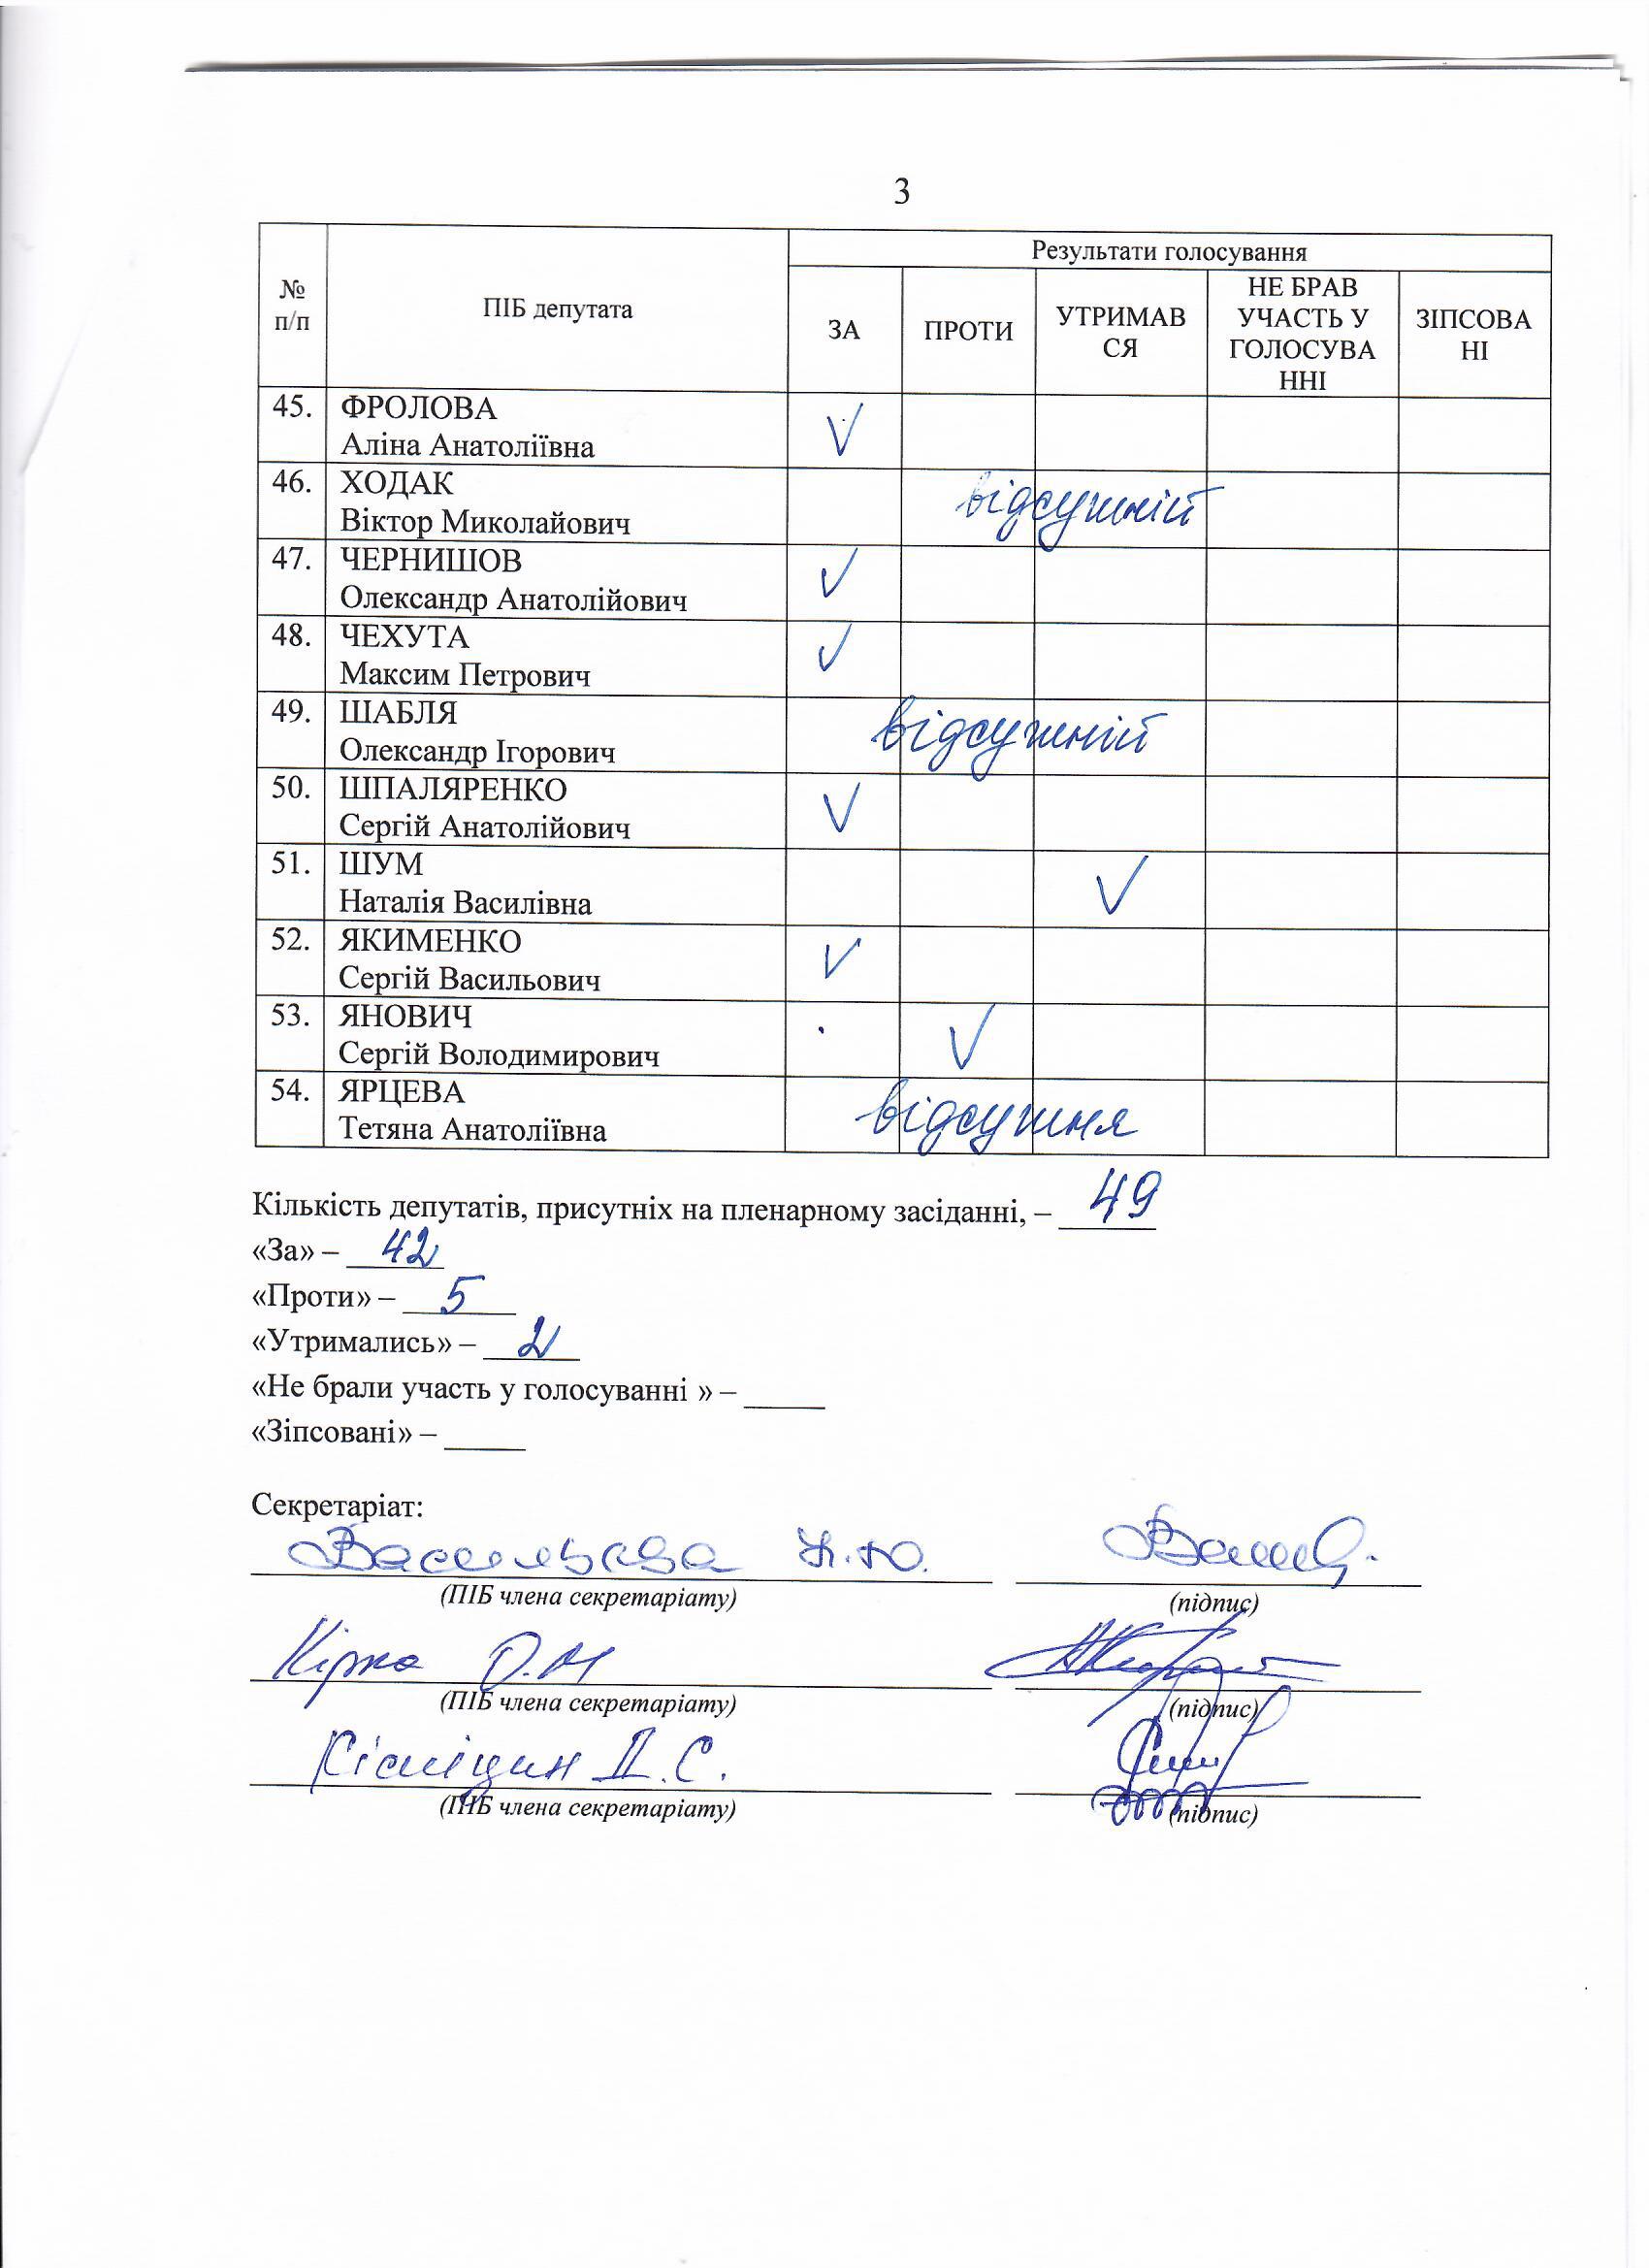 3
№ п/п
ПІБ депутата
Результати голосування
ЗА
ПРОТИ
УТРИМАВ
СЯ
НЕ БРАВ
УЧАСТЬ У
ГОЛОСУВА
ННІ
ЗІПСОВА
НІ
45. ФРОЛОВА
Аліна Анатоліївна
46. ХОДАК відсутній
Віктор Миколайович
47. ЧЕРНИШОВ
Олександр Анатолійович
48. ЧЕХУТА
Максим Петрович
49. ШАБЛЯ відсутній
Олександр Ігорович
50. ШПАЛЯРЕНКО
Сергій Анатолійович
51. ШУМ
Наталія Василівна
52. ЯКИМЕНКО
Сергій Васильович
53. ЯНОВИЧ
Сергій Володимирович
54. ЯРЦЕВА відсутня
Тетяна Анатоліївна
Кількість депутатів, присутніх на пленарному засіданні, – 49
«За» – 42
«Проти» – 5
«Утримались» – 2
«Не брали участь у голосуванні » – _____
«Зіпсовані» – _____
Секретаріат:
Н.Ю.
(ПІБ члена секретаріату) (підпис)
О.М
(ПІБ члена секретаріату) (підпис)
Д.С.
(ПІБ члена секретаріату) (підпис)